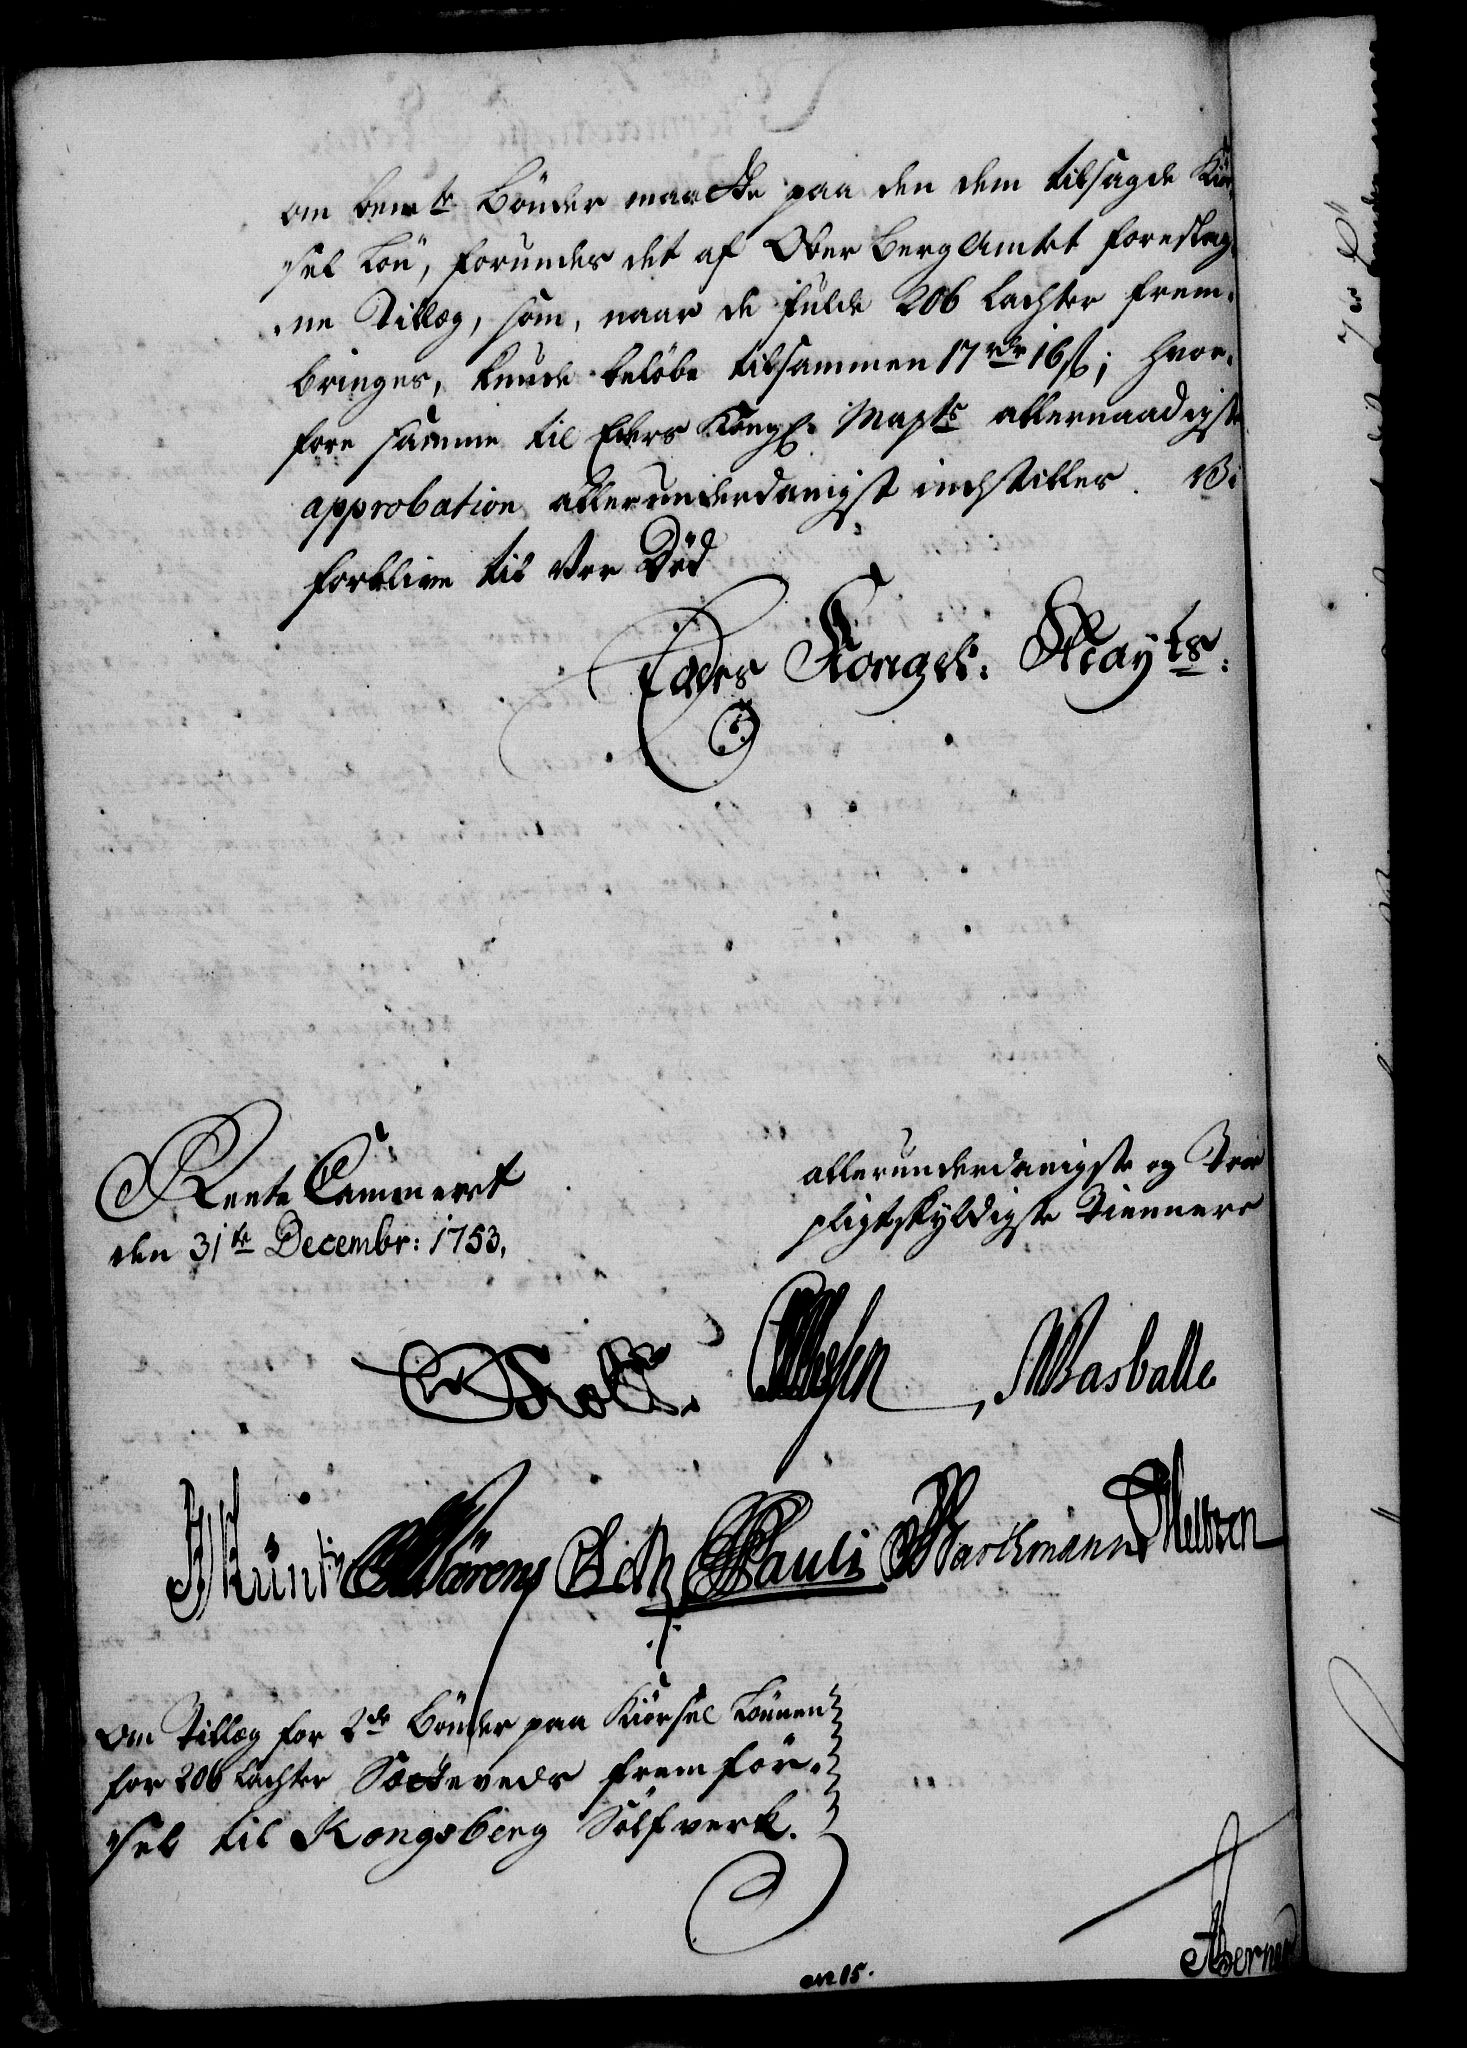 om bemte Bönder maatte paa den dem tilsagde Kiör-
sel Lön, forundes det af Ober Berg Amtet foreslag-
ne Tillæg, som, naar de fulde 206 Lachter frem-
bringes, kunde beløbe tilsammen 17 rdr 16 ß; hvor-
fore samme til Eders Kongl. Mayts allernaadigste
approbation allerunderdanigst indstilles. Vi
forblive til vor Död
Eders Kongel: Mayts:
Rente Cammeret
den 31te Decembr: 1753,
allerunderdanigste og Troe
pligtskyldigste Tiennere
Holst. Basballe
Pauli Barchmann
Om Tillæg for 2de Bönder paa Kiörsel Lönnen
for 206 Lachter Sætteveds fremför-
sel til Kongsberg Sölfverk.
N 15.